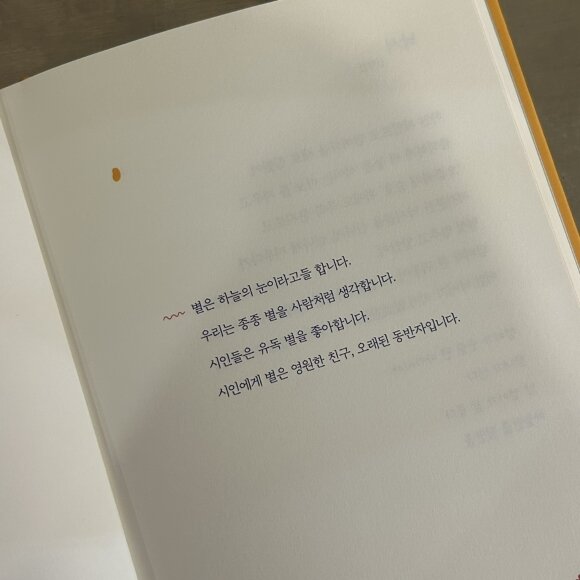 별은 하늘의 눈이라고들 합니다.
우리는 종종 별을 사람처럼 생각합니다.
시인들은 유독 별을 좋아합니다.
시인에게 별은 영원한 친구, 오래된 동반자입니다.